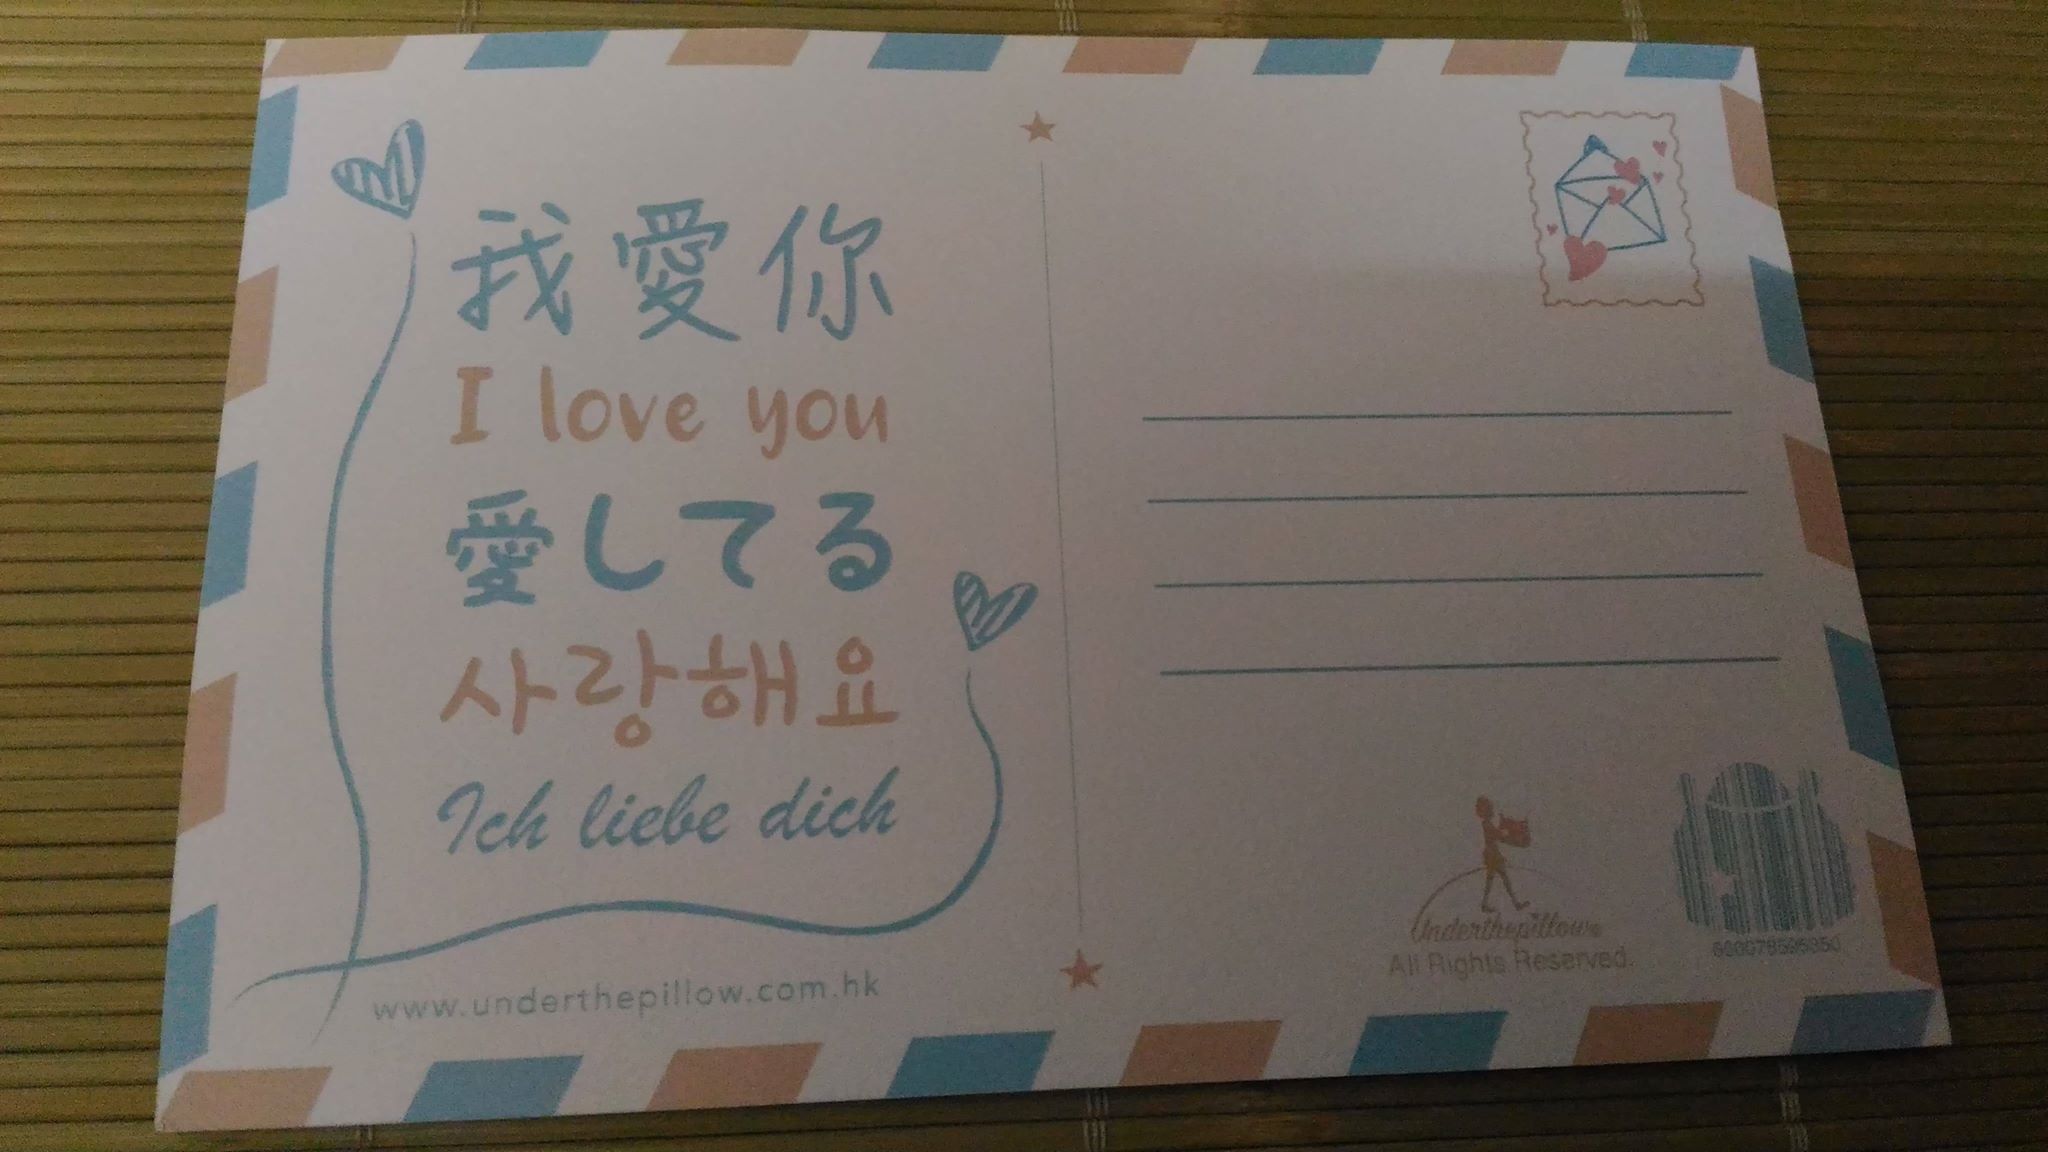 我愛你
I love you
愛してる
사랑해요
Ich liebe dich
www.underthepillow.com.hk
Underthepillow
All Rights Reserved.